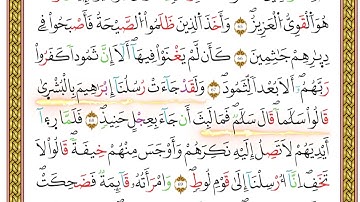 هُوَ ٱلْقَوِىُّ ٱلْعَزِيزُ وَأَخَذَ ٱلَّذِينَ ظَلَمُوا۟ ٱلصَّيْحَةُ فَأَصْبَحُوا۟ فِى
دِيَٰرِهِمْ جَٰثِمِينَ كَأَن لَّمْ يَغْنَوْا۟ فِيهَآ أَلَآ إِنَّ ثَمُودَا۟ كَفَرُوا۟
رَبَّهُمْ أَلَا بُعْدًا لِّثَمُودَ وَلَقَدْ جَآءَتْ رُسُلُنَآ إِبْرَٰهِيمَ بِٱلْبُشْرَىٰ
قَالُوا۟ سَلَٰمًا قَالَ سَلَٰمٌ فَمَا لَبِثَ أَن جَآءَ بِعِجْلٍ حَنِيذٍ فَلَمَّا رَءَآ
أَيْدِيَهُمْ لَا تَصِلُ إِلَيْهِ نَكِرَهُمْ وَأَوْجَسَ مِنْهُمْ خِيفَةً قَالُوا۟ لَا
تَخَفْ إِنَّآ أُرْسِلْنَآ إِلَىٰ قَوْمِ لُوطٍ وَٱمْرَأَتُهُۥ قَآئِمَةٌ فَضَحِكَتْ